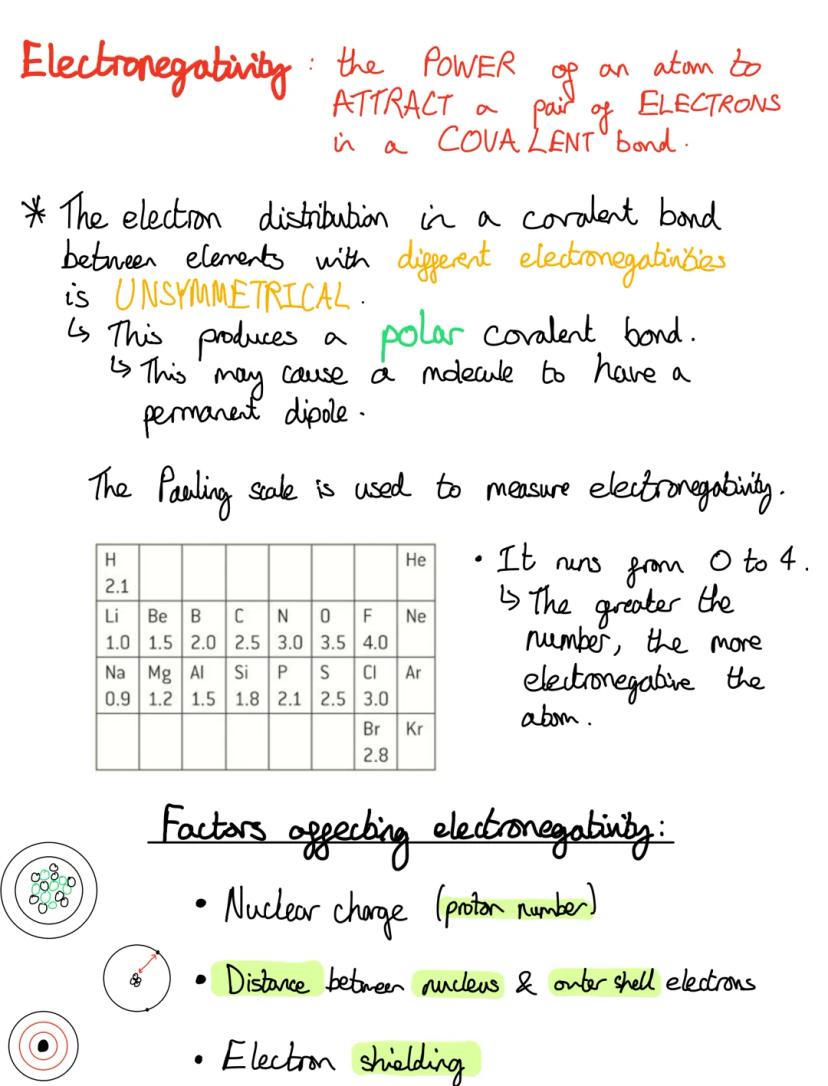 Electronegativity : the POWER of an atom to
ATTRACT a pair of ELECTRONS
in a COVALENT bond.
* The electron distribution in a covalent bond
between elements with different electronegativities
is UNSYMMETRICAL.
↳ This produces a polar covalent bond.
↳ This may cause a molecule to have a
permanent dipole.
The Pauling scale is used to measure electronegativity.
H He
2.1
Li Be B C N O F Ne
1.0 1.5 2.0 2.5 3.0 3.5 4.0
Na Mg Al Si P S Cl Ar
0.9 1.2 1.5 1.8 2.1 2.5 3.0
Br Kr
2.8
• It runs from 0 to 4.
↳ The greater the
number, the more
electronegative the
atom.
Factors affecting electronegativity:
• Nuclear charge (proton number)
• Distance between nucleus & outer shell electrons
• Electron shielding